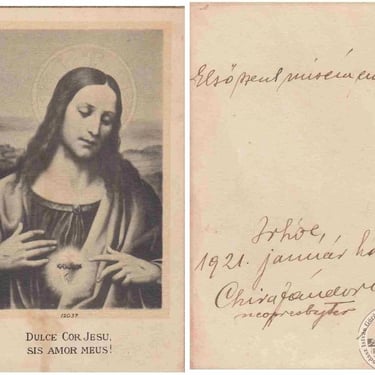 12037
DULCE COR JESU,
SIS AMOR MEUS!
Első szent misém
Irhóc,
1921. január
Chira Sándor
neopresbyter